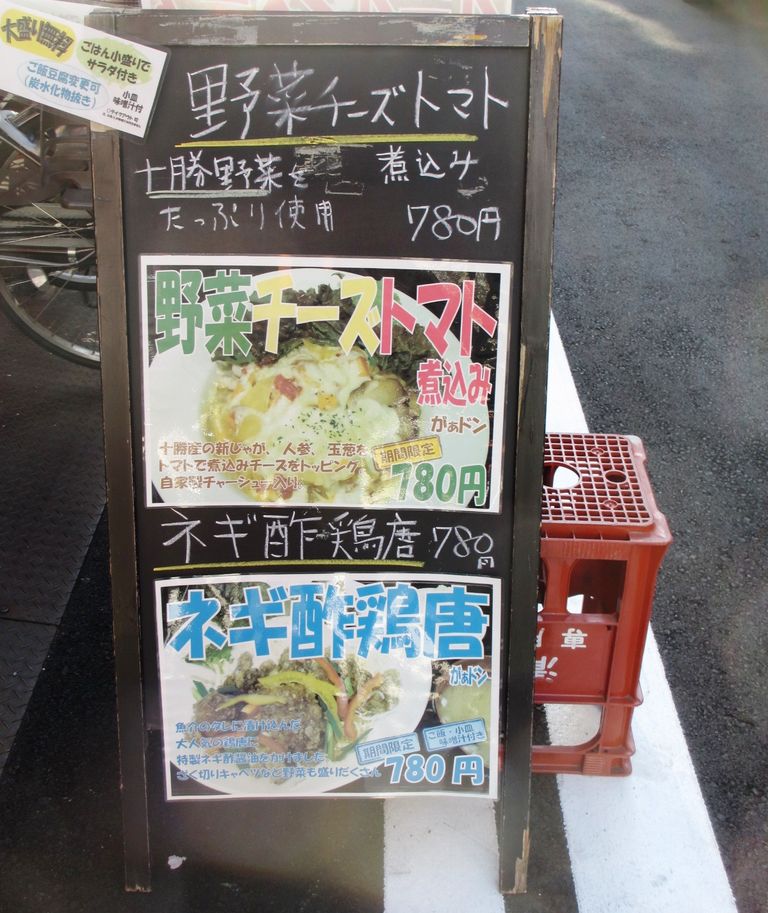 大盛り無料
ごはん小盛りで
サラダ付き
ご飯豆腐変更可
(炭水化物抜き)
小皿
味噌汁付
野菜チーズトマト
煮込み
十勝野菜を
たっぷり使用
780円
野菜チーズトマト
煮込み
がぁドン
十勝産の新じゃが、人参、玉葱を
トマトで煮込みチーズをトッピング
自家製チャーシュー入り。
期間限定
780円
ネギ酢鶏唐 780円
ネギ酢鶏唐
がぁドン
魚介のタレに漬け込んだ
大人気の鶏唐に
特製ネギ酢醤油をかけました
ざく切りキャベツなど野菜も盛りだくさん
期間限定
ご飯・小皿
味噌汁付き
780円
専